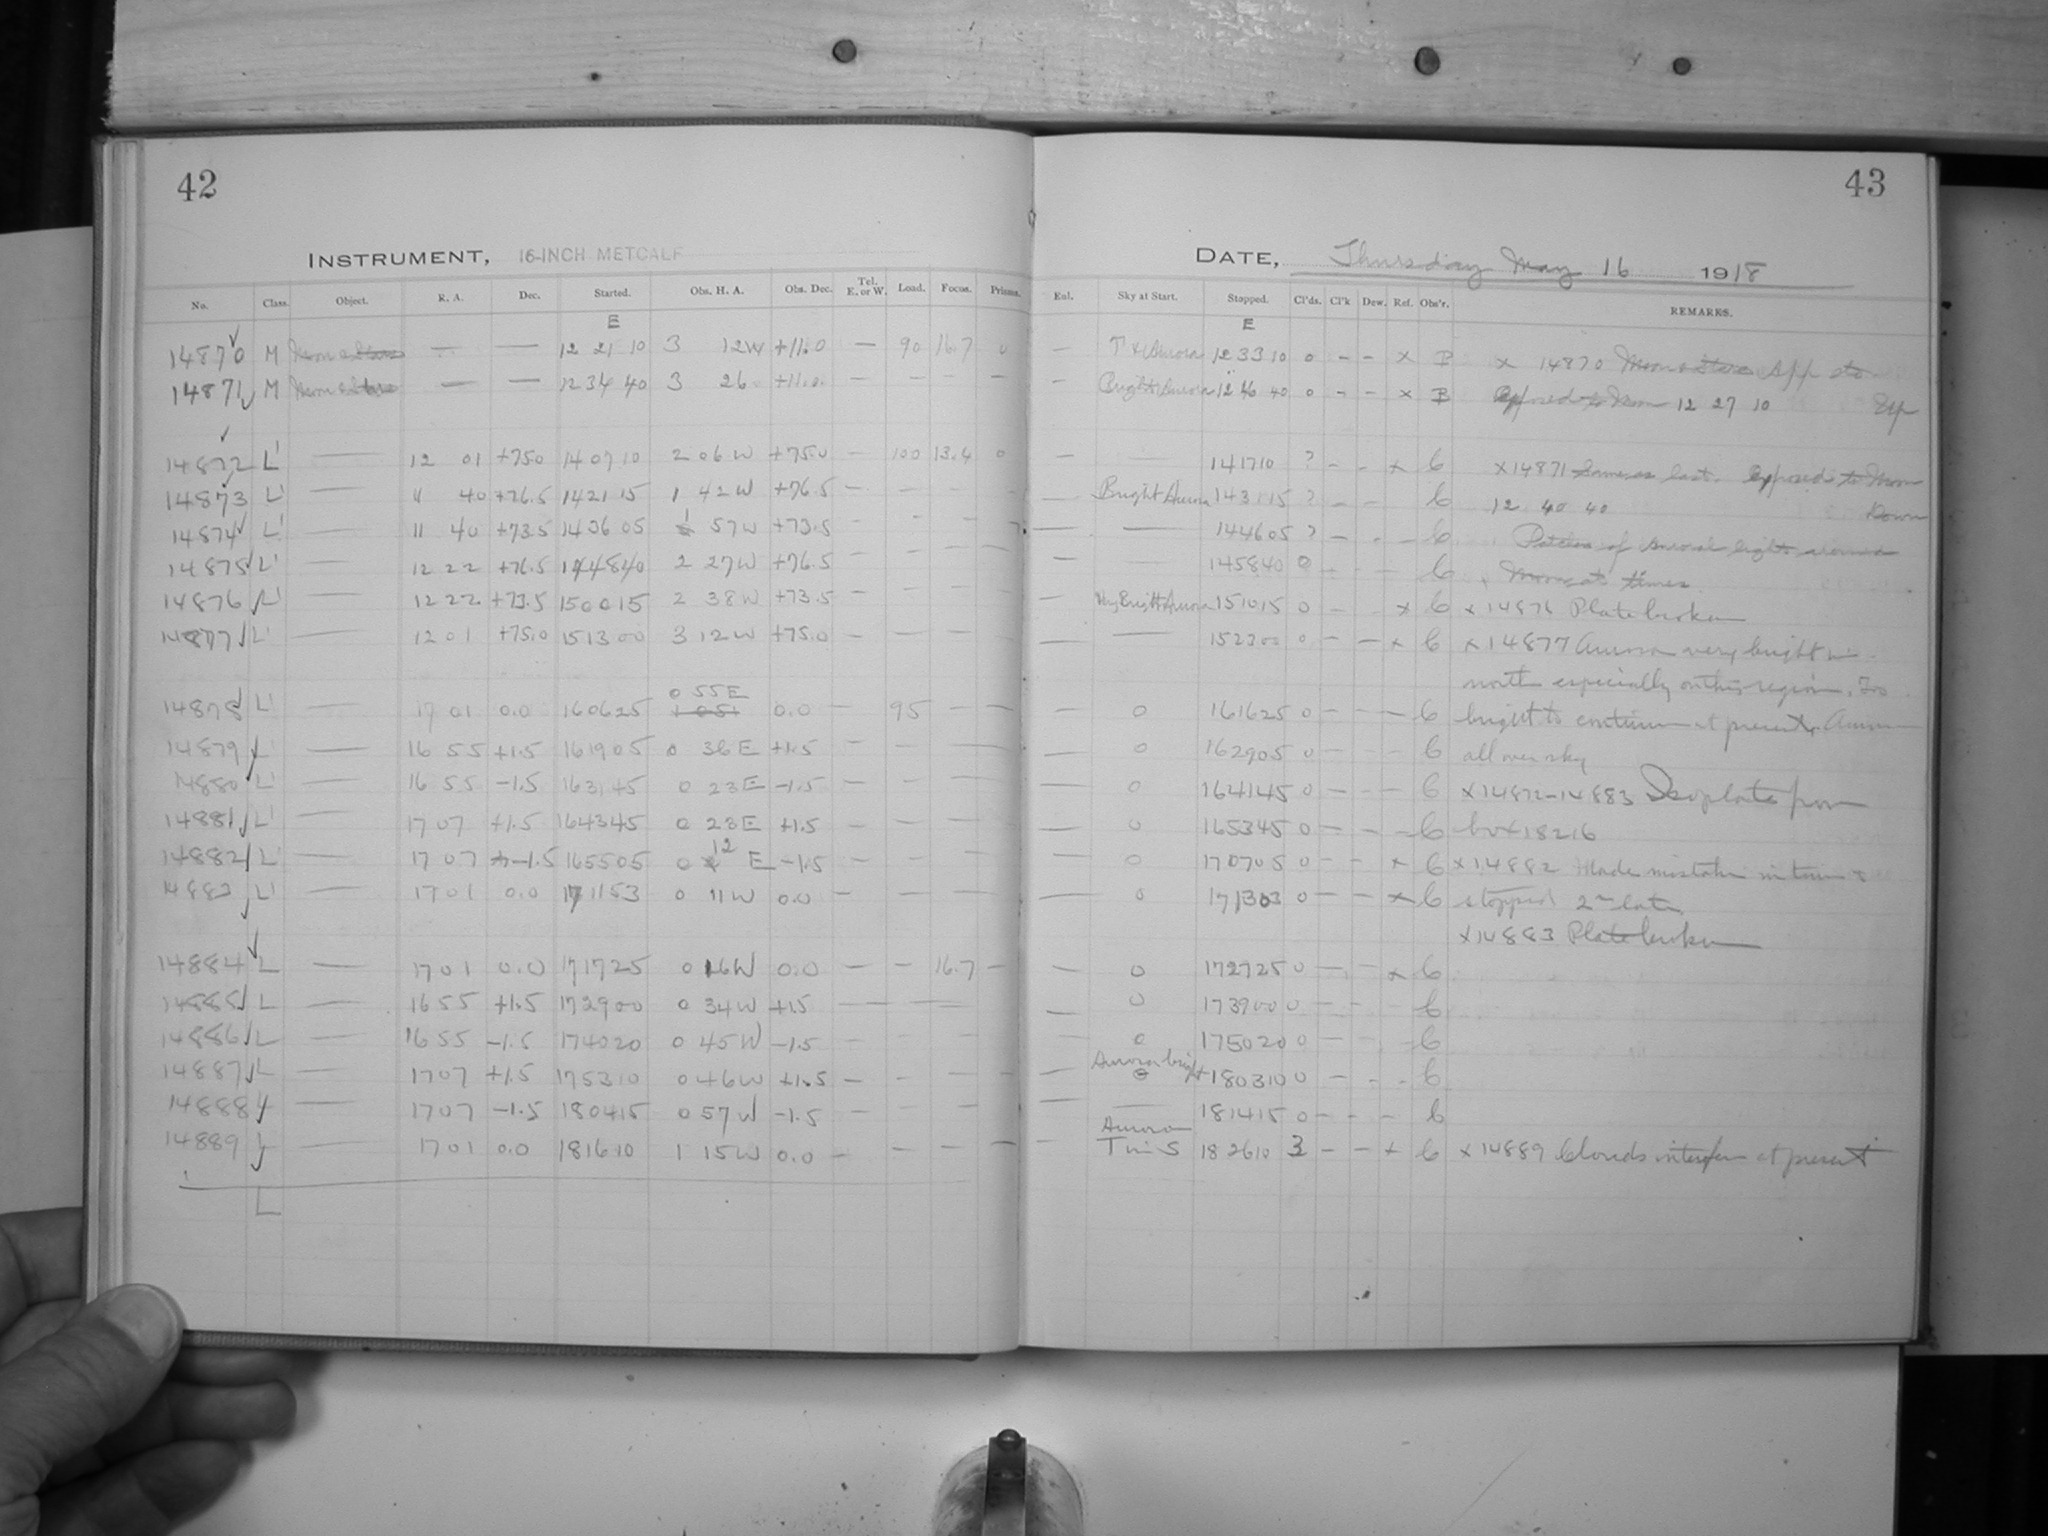 42
INSTRUMENT, 16-INCH METCALF
No. Class. Object. R. A. Dec. Started. Obs. H. A. Obs. Dec. Tel. E. or W. Load. Focus. Prisms.
E
14870 M Moon & Stars — — 12 21 10 3 12W +11.0 — 90 16.7 0
14871 M Moon & Stars — — 12 34 40 3 26 +11.0 — — — —
14872 L' — 12 01 +75.0 14 07 10 2 06 W +75.0 — 100 13.4 0
14873 L' — 11 40 +76.5 14 21 15 1 42 W +76.5 — — — —
14874 L' — 11 40 +73.5 14 36 05 1 57 W +73.5 — — —
14875 L' — 12 22 +76.5 14 48 40 2 27 W +76.5 — — — —
14876 L' — 12 22 +73.5 15 00 15 2 38 W +73.5 — — — —
14877 L' — 12 01 +75.0 15 13 00 3 12 W +75.0 — — — —
0 55 E
14878 L' — 17 01 0.0 16 06 25 1 05 0.0 — 95 — —
14879 L' — 16 55 +1.5 16 19 05 0 36 E +1.5 — — —
14880 L' — 16 55 -1.5 16 31 45 0 23 E -1.5 — — — —
14881 L' — 17 07 +1.5 16 43 45 0 23 E +1.5 — — — —
14882 L' — 17 07 -1.5 16 55 05 0 12 E -1.5 — — — —
14883 L' — 17 01 0.0 17 11 53 0 11 W 0.0 — — —
14884 L — 17 01 0.0 17 17 25 0 16 W 0.0 — — 16.7 —
14885 L — 16 55 +1.5 17 29 00 0 34 W +1.5 — — —
14886 L — 16 55 -1.5 17 40 20 0 45 W -1.5 — — —
14887 L — 17 07 +1.5 17 53 10 0 46 W +1.5 — — — —
14888 — 17 07 -1.5 18 04 15 0 57 W -1.5 — — — —
14889 — 17 01 0.0 18 16 10 1 15 W 0.0 — — — —
L
43
DATE, Thursday May 16 1918
Eul. Sky at Start. Stopped. Cl'ds. Cl'k Dew. Ref. Obs'r. REMARKS.
E
— Aurora 12 33 10 0 — — x B x 14870 Moon & Stars App
— Bright Aurora 12 46 40 0 — — x B exposed to Moon 12 27 10
— — 14 17 10 ? — — x C x 14871 Same as last. exposed to Moon
— Bright Aurora 14 31 15 ? — — C 12 40 40 Down
— — 14 46 05 ? — — — C Patches of auroral light around
— — 14 58 40 0 C Moon at times
— Very Bright Aurora 15 10 15 0 — — x C x 14876 Plate broken
— — 15 23 00 0 — — x C x 14877 Aurora very bright in
north especially on this region. Too
— 0 16 16 25 0 — — — C bright to continue at present. Aurora
— 0 16 29 05 0 — — — C all over sky
— 0 16 41 45 0 — — — C x 14872-14883 Iso plate from
— 0 16 53 45 0 — — — C box 18216
— 0 17 07 05 0 — — x C x 14882 Made mistake in time &
— 0 17 13 03 0 — — x C stopped 2m late
x 14883 Plate broken
— 0 17 27 25 0 — — x C
— 0 17 39 00 0 — — — C
— 0 17 50 20 0 — — — C
Aurora bright
— 0 18 03 10 0 — — — C
— — 18 14 15 0 — — — C
Aurora
— T in S 18 26 10 3 — — x C x 14889 Clouds interfere at present